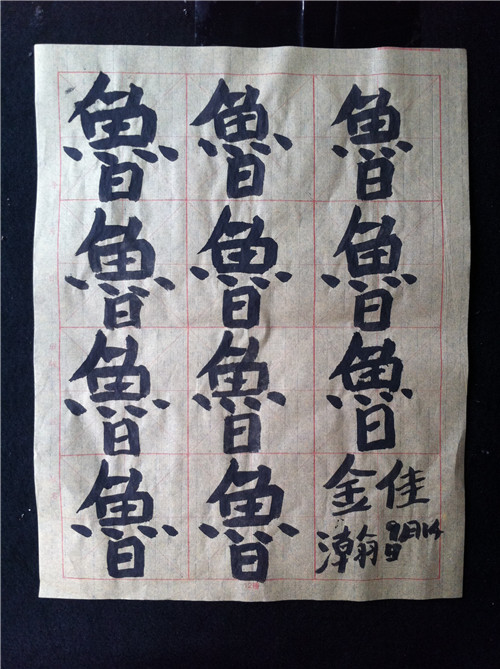 魯魯魯
魯魯魯
魯魯魯
魯魯
金佳
瀚 9月14日